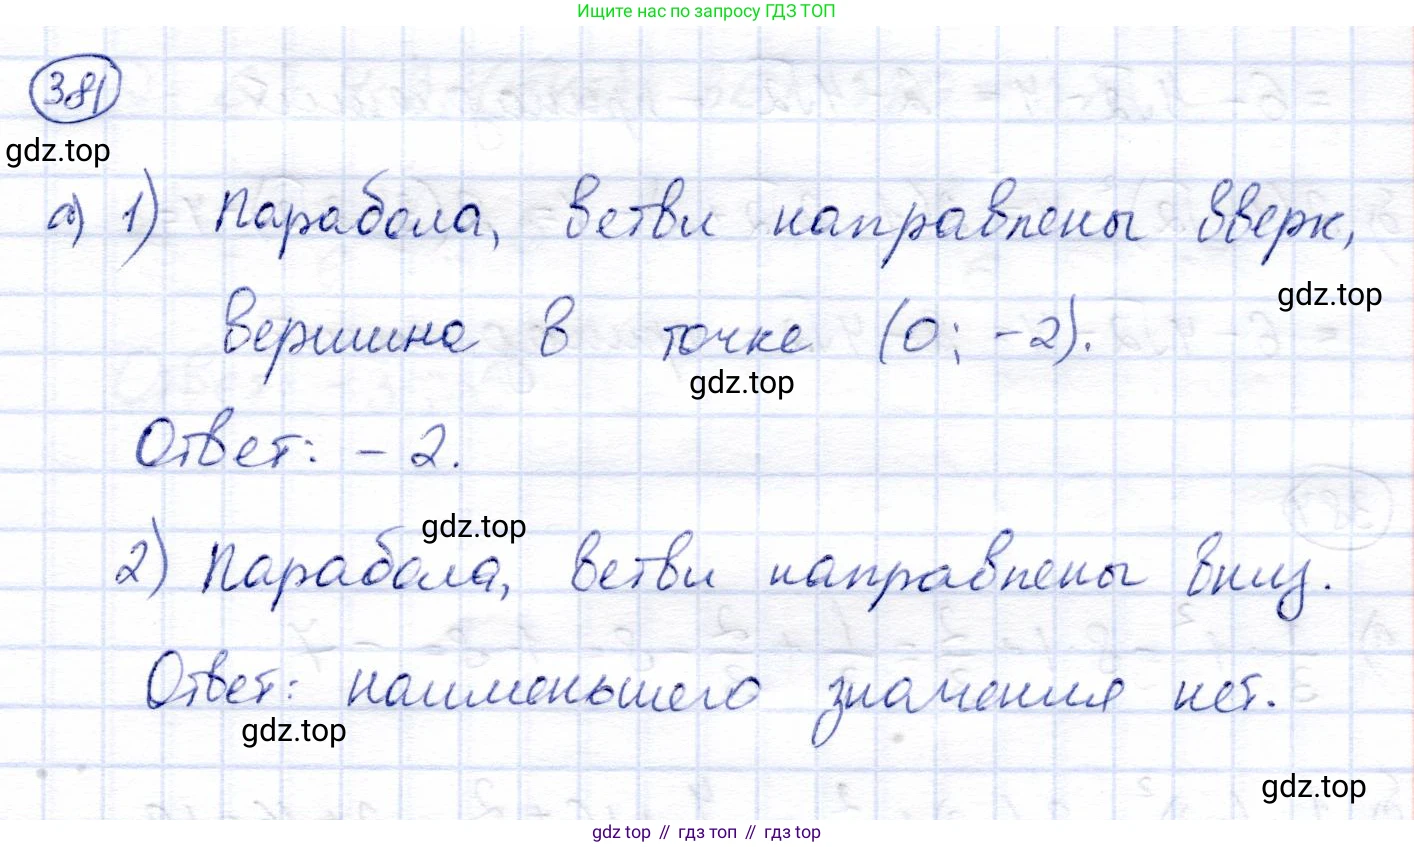 Ищите нас по запросу ГДЗ ТОП
381
gdz.top
а) 1) Парабола, ветви направлены вверх,
gdz.top
вершина в точке (0; -2).
gdz.top
Ответ: -2.
gdz.top
2) Парабола, ветви направлены вниз.
Ответ: наименьшего значения нет.
gdz.top
gdz.top
gdz top // гдз топ // гдз top